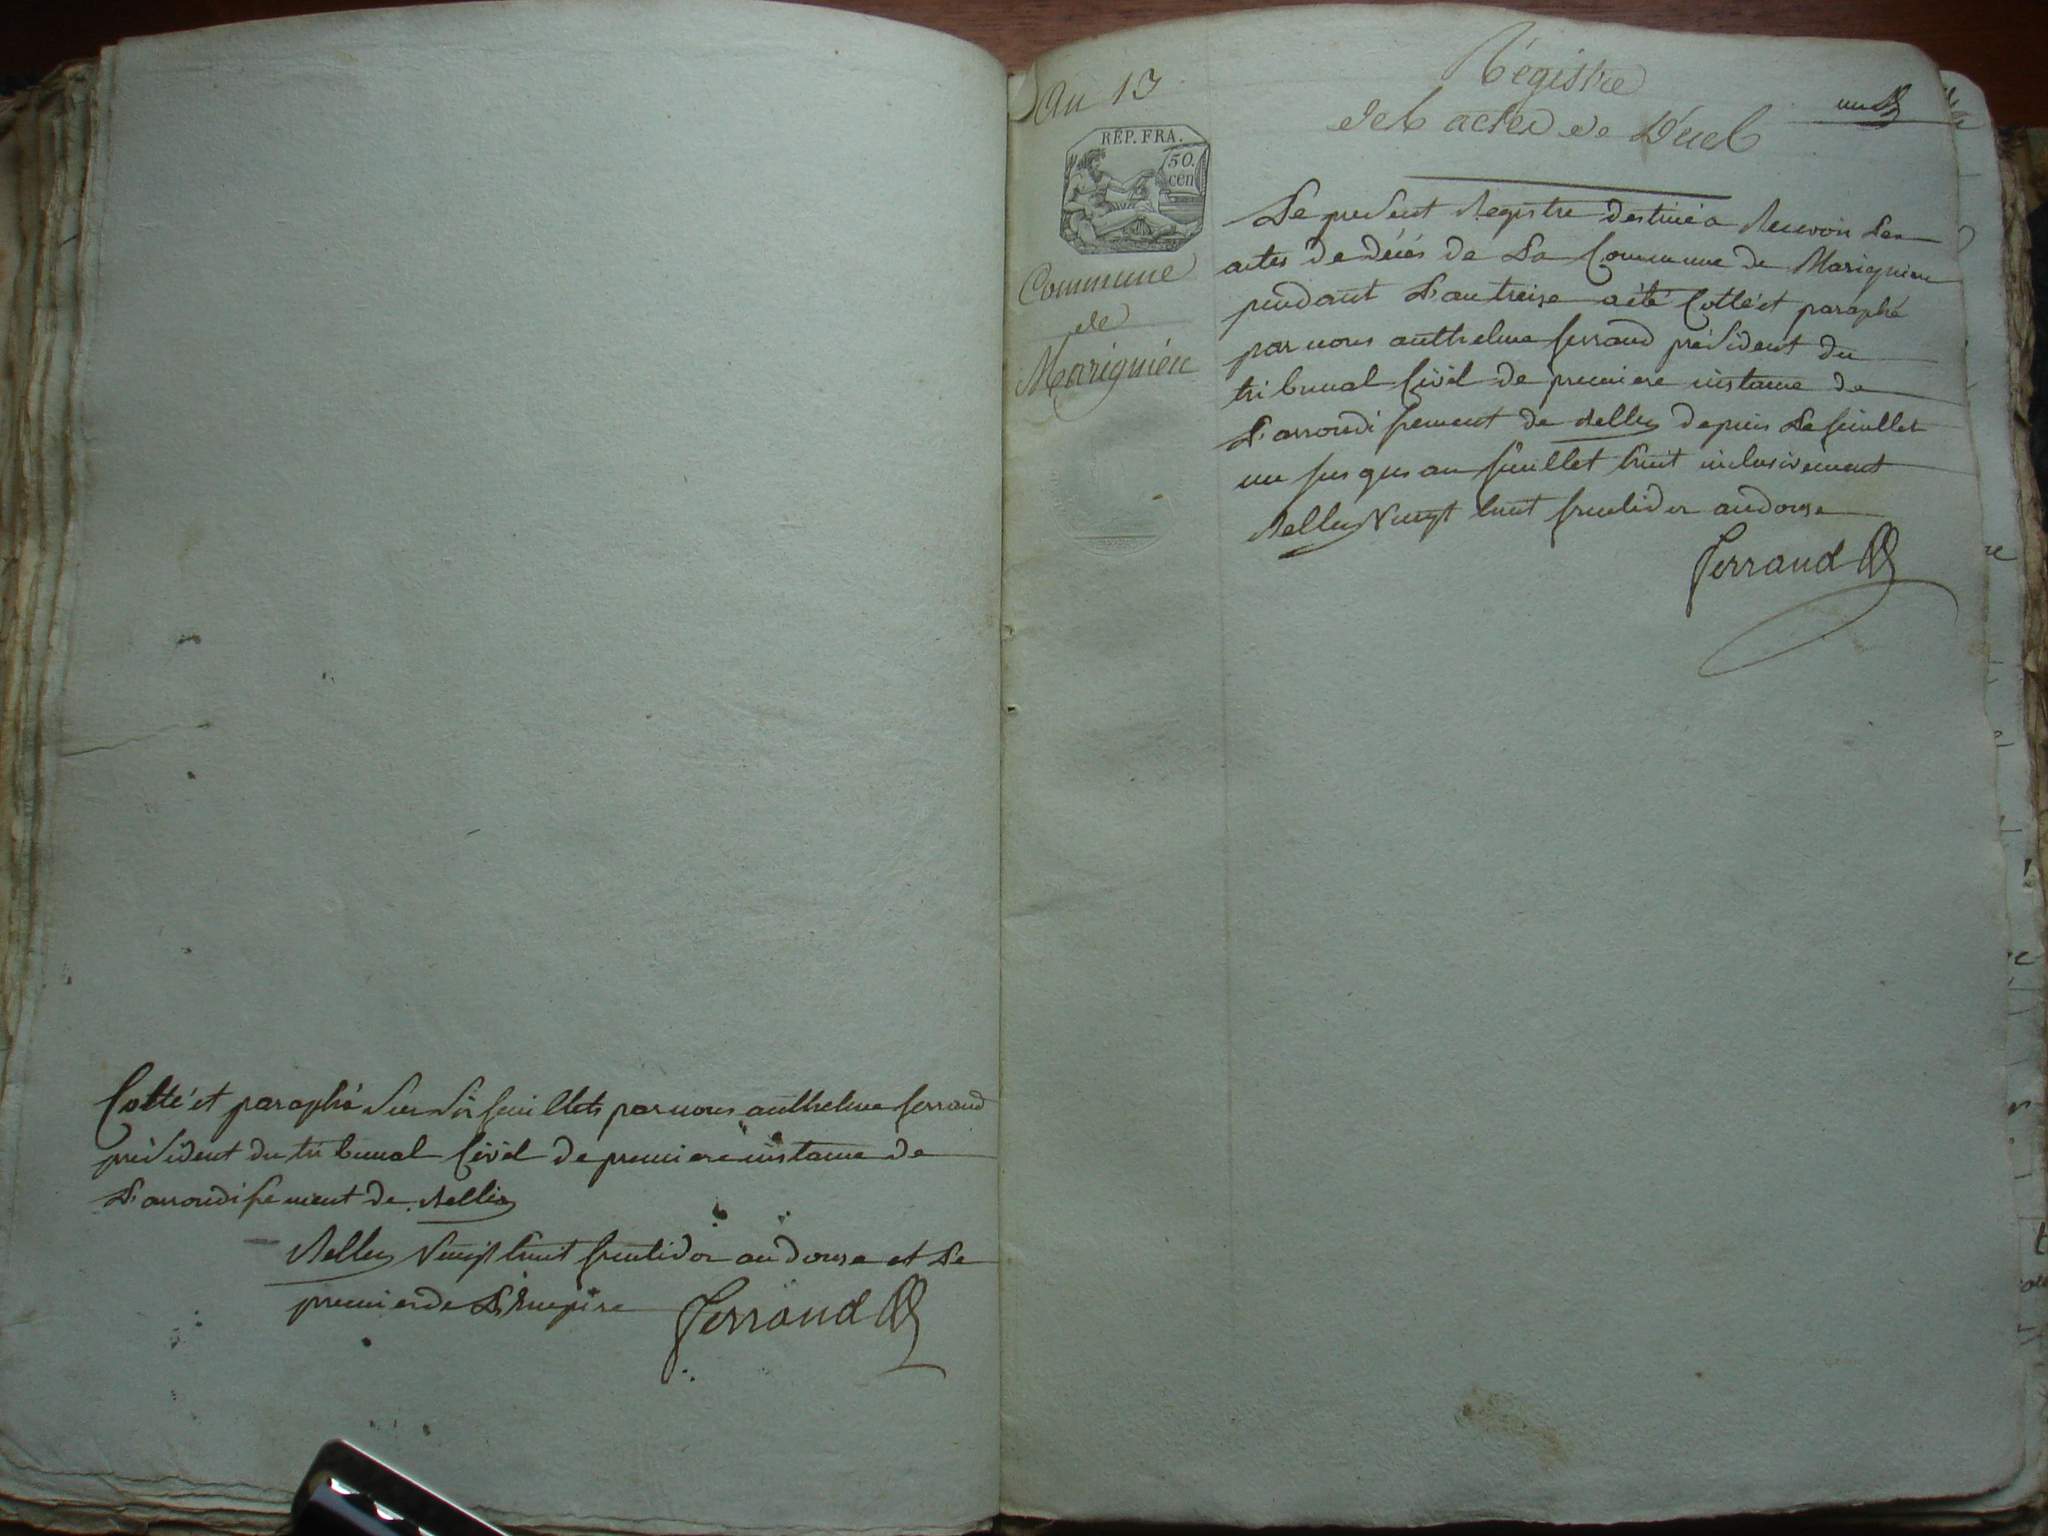 Cotté et paraphé sur six feuillets par nous anthelme ferrand
président du tribunal Civil de premiere instance de
L'arrondissement de Belley
Belley Vingt huit fructidor an douze et Le
premier de L'Empire Ferrand
An 13
RÉP. FRA.
50.
cen
Commune
de
Marignieu
Régistre
des actes de Décés
un
Le present Registre destiné a Recevoir Les
actes de décés de La Commune de Marignieu
pendant L'an treize a été Cotté et paraphé
par nous anthelme ferrand président du
tribunal Civil de premiere instance de
L'arrondissement de Belley depuis Le feuillet
un jusques au feuillet huit inclusivement
Belley Vingt huit fructidor an douze
Ferrand